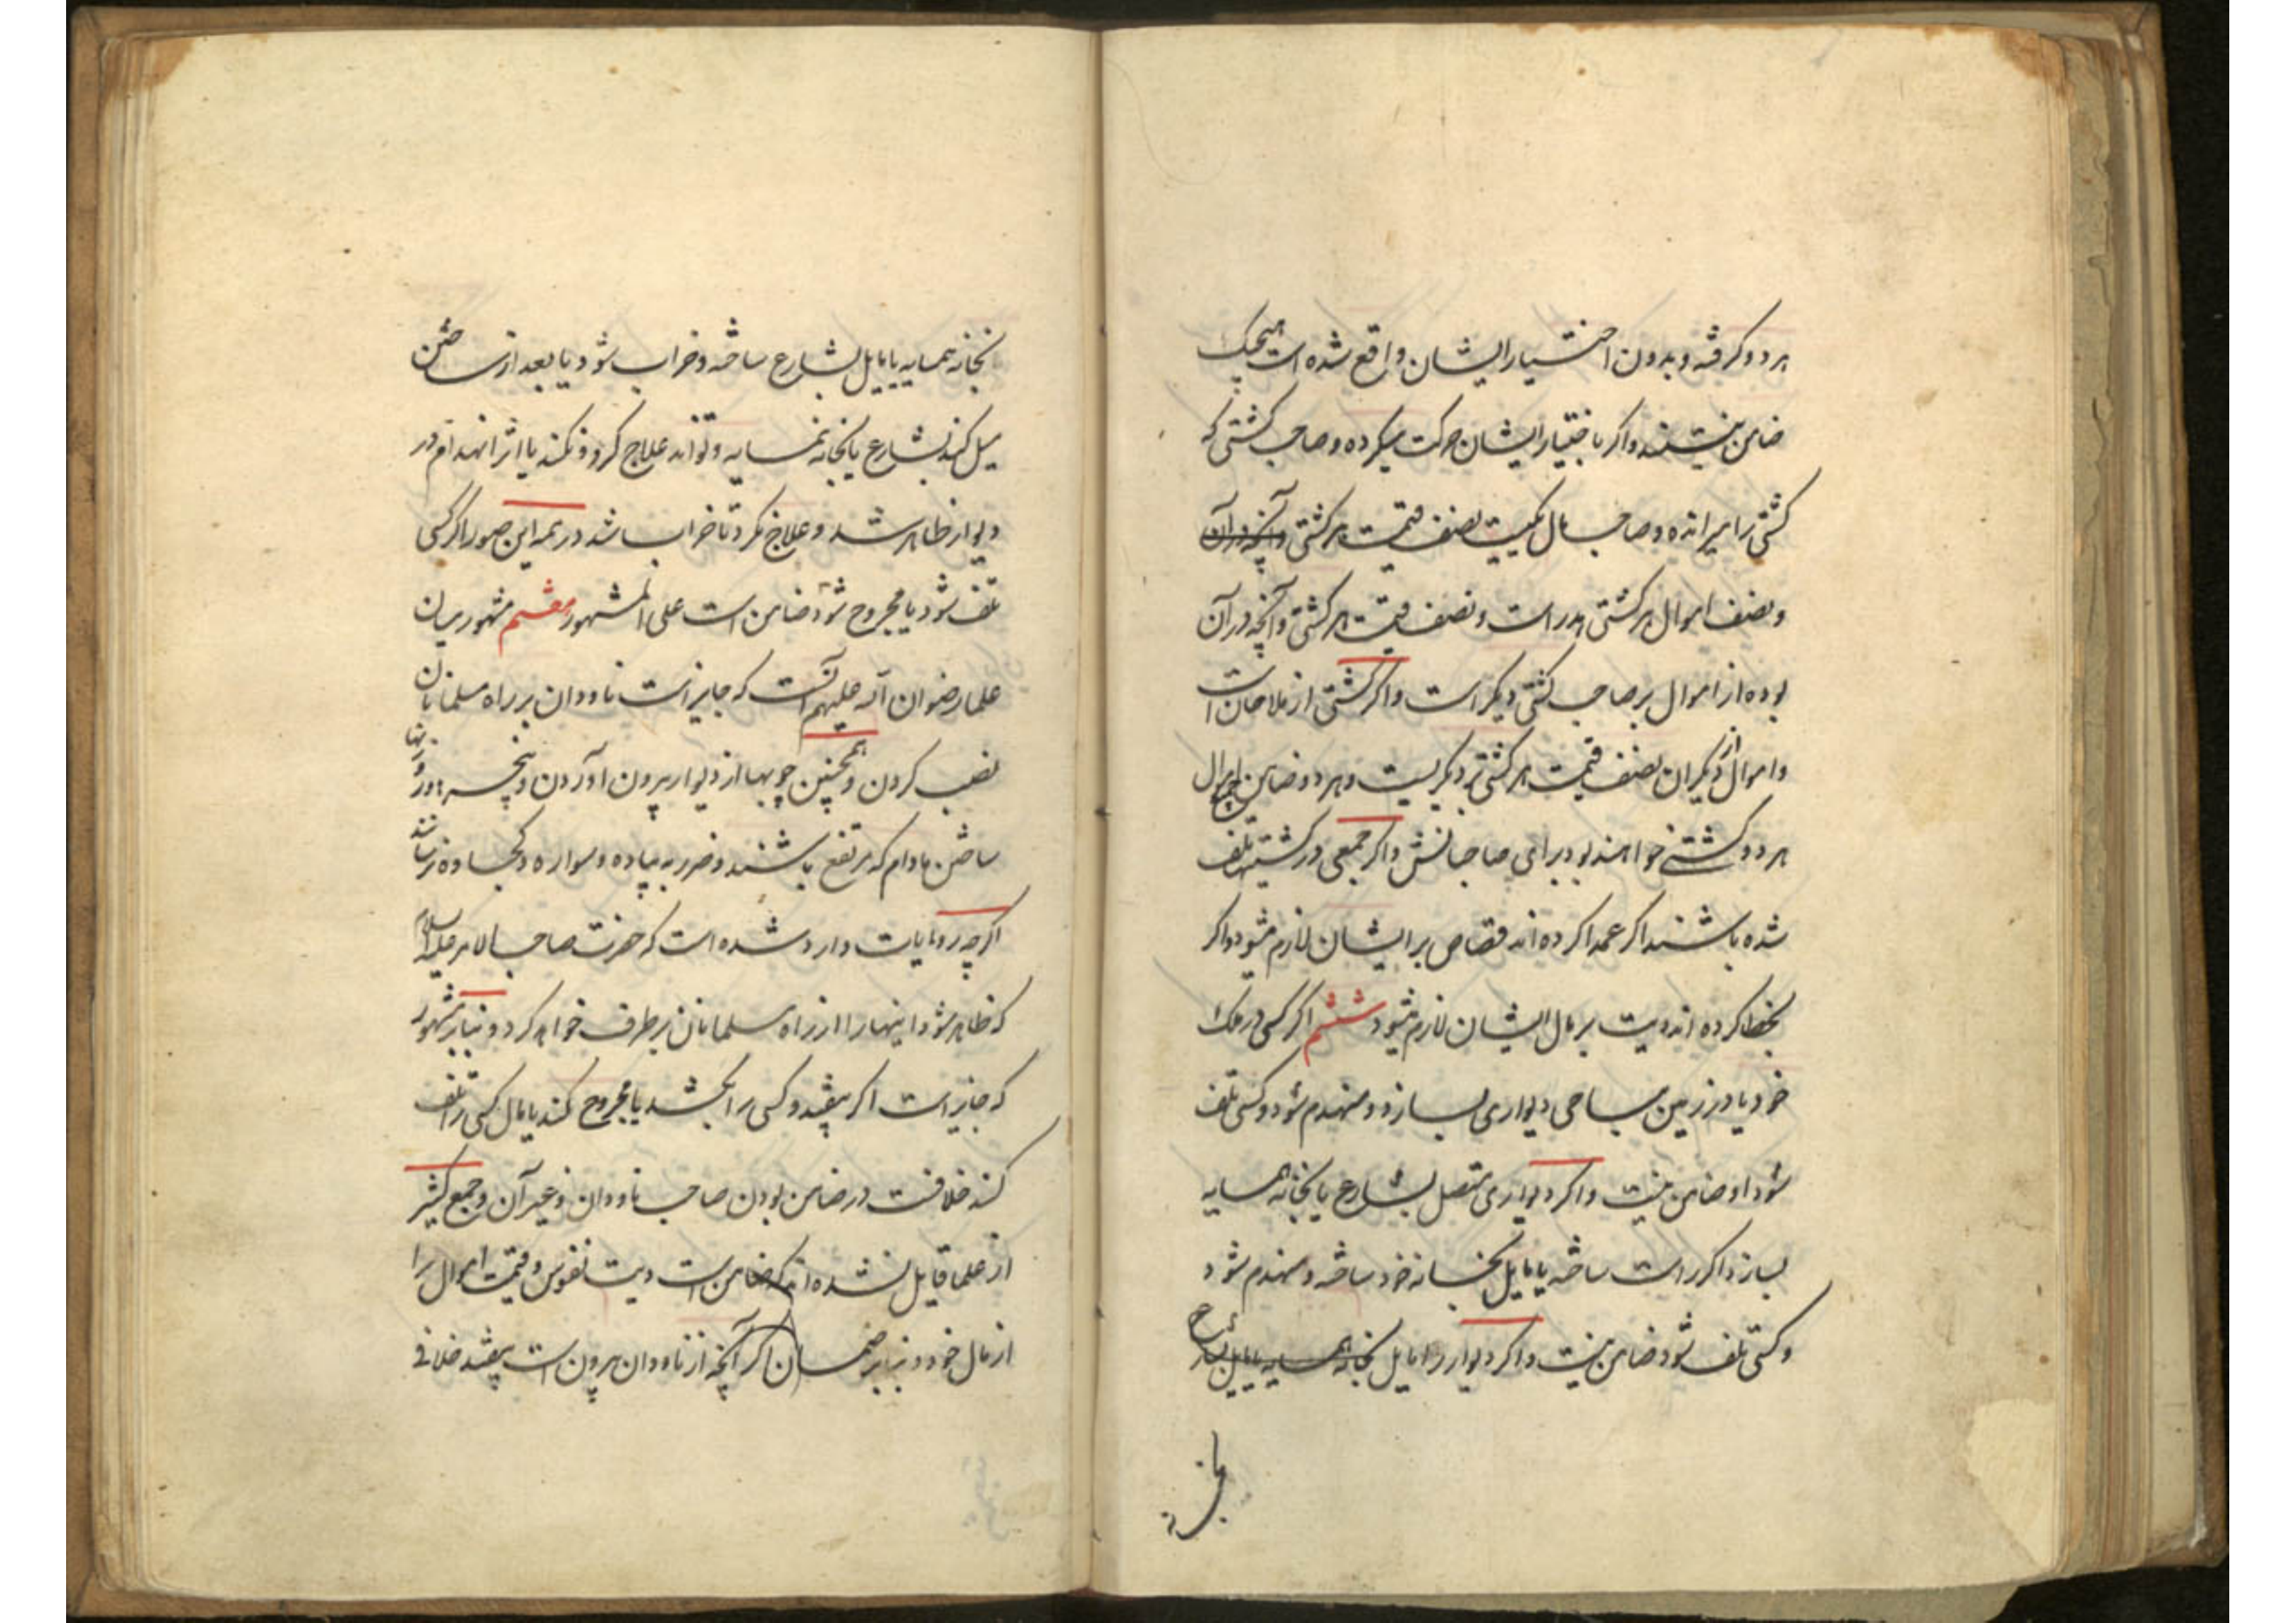 هر دو گرفته و بدون اختیار ایشان واقع شده است هیچیک
ضامن نیستند و اگر باختیار ایشان حرکت میکرده و صاحب کشتی که
کشتی را میرانده و صاحب مال یکیست نصف قیمت هر کشتی وآنچه در آن
و نصف اموال هر کشتی هدر است و نصف قیمت هر کشتی و آنچه در آن
بوده از اموال بر صاحب کشتی دیگر است و اگر کشتی از ملاحان است
و اموال از دیگران نصف قیمت هر کشتی بر دیگریست و هر دو ضامن اموال
هر دو کشتی خواهند بود برای صاحبانش و اگر جمعی در کشتیها تلف
شده باشند اگر عمدا کرده اند قصاص بر ایشان لازم میشود و اگر
بخطا کرده اند دیت بر مال ایشان لازم میشود ششم اگر کسی در ملک
خود یا در زمین مباحی دیواری بسازد و منهدم شود و کسی تلف
شود او ضامن نیست و اگر دیواری متصل بشارع یا بخانه همسایه
بسازد اگر راست ساخته یا مایل بخانه خود ساخته و منهدم شود
و کسی تلف شود ضامن نیست و اگر دیوار را مایل بخانه همسایه یا مایل بشارع
بخانه
بخانه همسایه یا مایل بشارع ساخته و خراب شود یا بعد از ساختن
میل کند بشارع یا بخانه همسایه و تواند علاج کرد و نکند یا اثر انهدام در
دیوار ظاهر شد و علاج نکرد تا خراب شد در همه این صور اگر کسی
تلف شود یا مجروح شود ضامن است علی المشهور هفتم مشهور میان
علما رضوان الله علیهم آنست که جایز است ناودان بر راه مسلمانان
نصب کردن و همچنین چوبها از دیوار بیرون آوردن و پنجره ها و روزنها
ساختن مادام که مرتفع باشند و ضرر به پیاده و سواره و کجاوه نرسانند
اگرچه روایات وارد شده است که حضرت صاحب الامر علیه السلام
که ظاهر شود اینها را از راه مسلمانان برطرف خواهد کرد و بنابر مشهور
که جایز است اگر بیفتد و کسی را بکشد یا مجروح کند یا مال کسی را تلف
کند خلافست در ضامن بودن صاحب ناودان و غیر آن و جمع کثیر
از علما قایل شده اند که ضامن است دیت نفوس و قیمت اموال را
از مال خود و بنابر ضمان اگر آنچه از ناودان بیرون است بیفتد خلافی